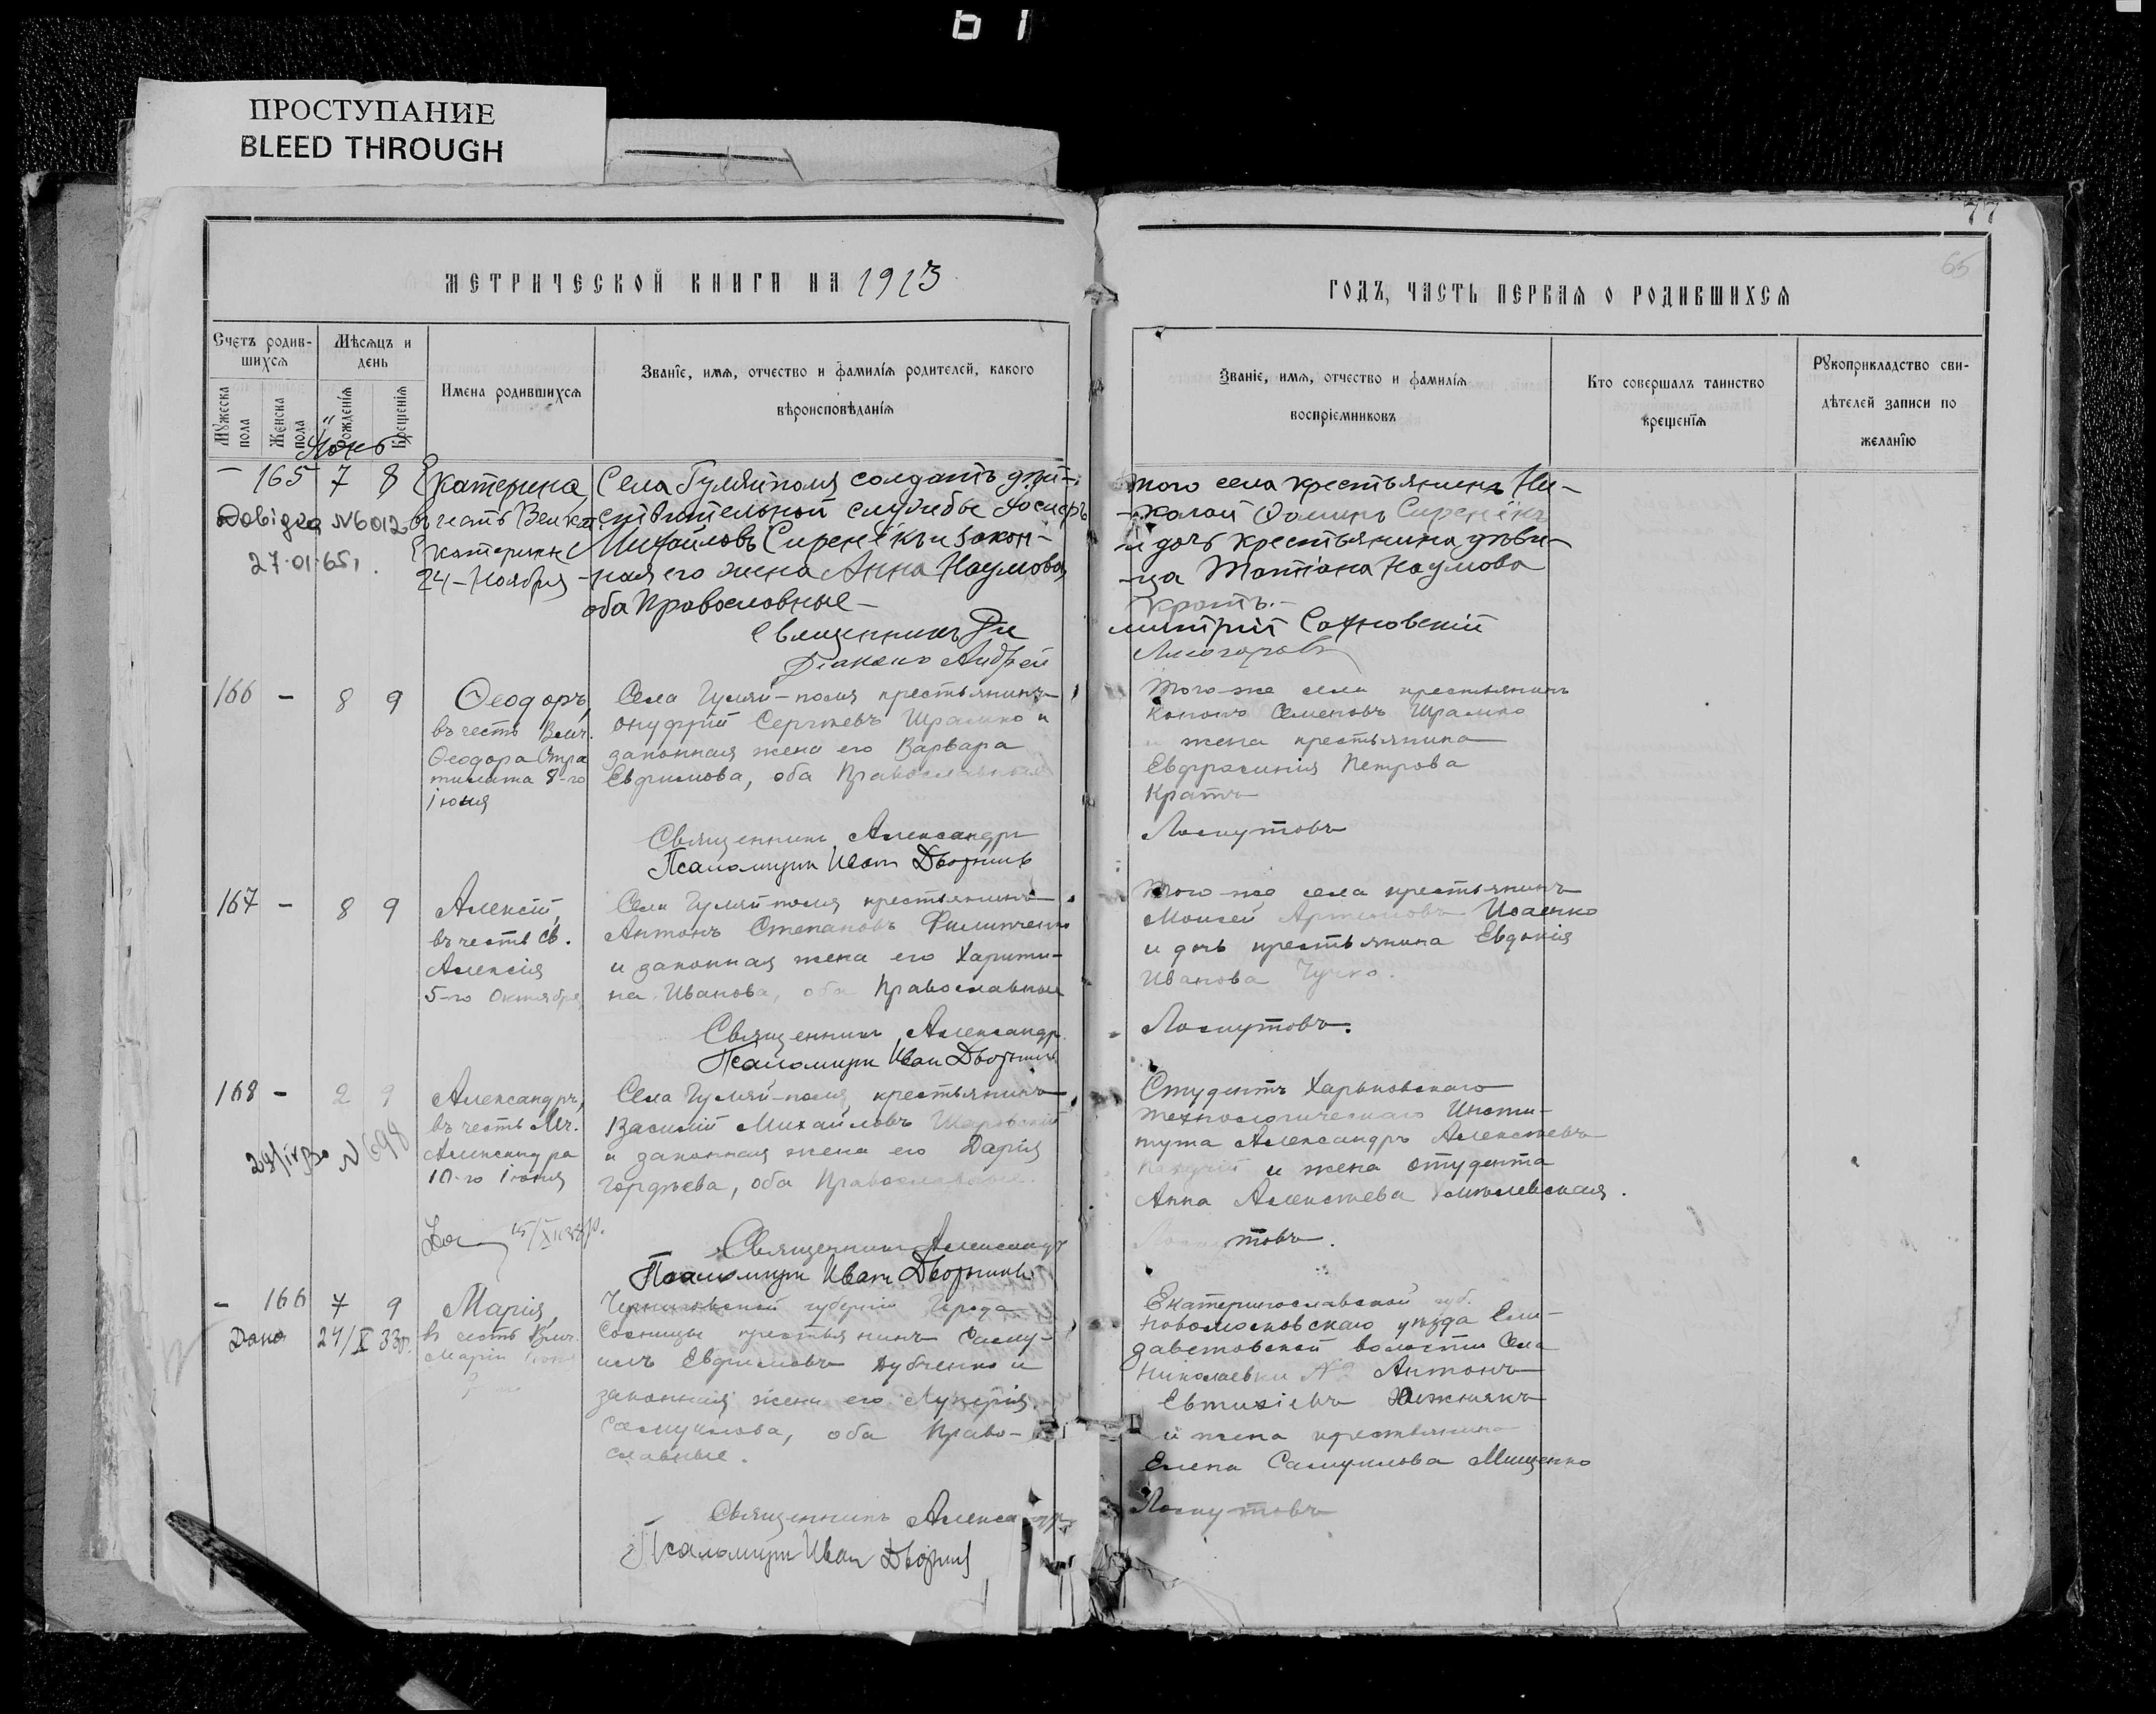 ПРОСТУПАНИЕ
BLEED THROUGH
77
65
МЕТРИЧЕСКОЙ КНИГИ НА 1913
ГОДЪ, ЧАСТЬ ПЕРВАЯ О РОДИВШИХСЯ
Счетъ родив-
шихся
Мужеска пола
Женска пола
Мѣсяцъ и
день
Рожденія
Крещенія
Имена родившихся
Званіе, имя, отчество и фамилія родителей, какого
вѣроисповѣданія
Званіе, имя, отчество и фамилія
воспріемниковъ
Кто совершалъ таинство
крещенія
Рукоприкладство сви-
дѣтелей записи по
желанію
Іюнь
— 165 7 8
Екатерина,
въ честь Велик.
Екатерины
24-Ноября
Довідка №6012
27.01.65
Села Гуляйполя солдатъ дѣй-
ствительной службы
Михайловъ Сиренёкъ и закон-
ная его жена Анна Наумова,
оба Православные —
Священникъ Ди
Діаконъ Андрей
того села крестьянинъ Ни-
колай Фоминъ Сиренёкъ
и дочь крестьянина дѣви-
ца Татіана Наумова
Кратъ.—
митрій Сахновскій
166 — 8 9
Ѳеодоръ,
въ честь Влмч.
Ѳеодора Стра
тилата 8-го
іюня
Села Гуляй-поля крестьянинъ
Онуфрій Сергѣевъ Шрамко и
законная жена его Варвара
Евфимова, оба Православные
Священникъ Александръ
Псаломщикъ Иванъ Дворникъ
Того-же села крестьянинъ
Кононъ Семеновъ Шрамко
и жена крестьянина
Евфросинія Петрова
Кратъ
Лоскутовъ
167 — 8 9
Алексій,
въ честь Св.
Алексія
5-го Октября
Села Гуляй-поля крестьянинъ
Антонъ Степановъ Филипченко
и законная жена его Харити-
на Иванова, оба Православные
Священникъ Александръ
Псаломщикъ Иван Дворникъ
Того-же села крестьянинъ
Моисей Артемовъ Исаенко
и дочь крестьянина Евдокія
Иванова
Лоскутовъ.
168 — 2 9
Александръ,
въ честь Мч.
Александра
10-го іюня
№ 698
Села Гуляй-поля, крестьянинъ
Василій Михайловъ Шаровскій
и законная жена его Дарія
Гордѣева, оба Православные.
Священникъ Александръ
Псаломщикъ Иванъ Дворникъ
Студентъ Харьковскаго
технологическаго Инсти-
тута Александръ Алексѣевъ
и жена студента
Анна Алексѣева Хмѣлевская.
Лоскутовъ.
— 166 7 9
Дано 27/X 33р.
Марія,
въ честь Влмч.
Маріи іюня
Черниговской губерніи Города
Сосницы крестьянинъ Саму-
илъ Евфимовъ Дубченко и
законная жена его Лукерія
Самуилова, оба Право-
славные.
Священникъ Александръ
Псаломщикъ Иван Дворникъ
Екатеринославской губ.
Новомосковскаго уѣзда Ели-
заветовской волости Села
Николаевки № 2 Антонъ
Евтихіевъ Южнякъ
и жена крестьянина
Елена Самуилова Мищенко
Лоскутовъ